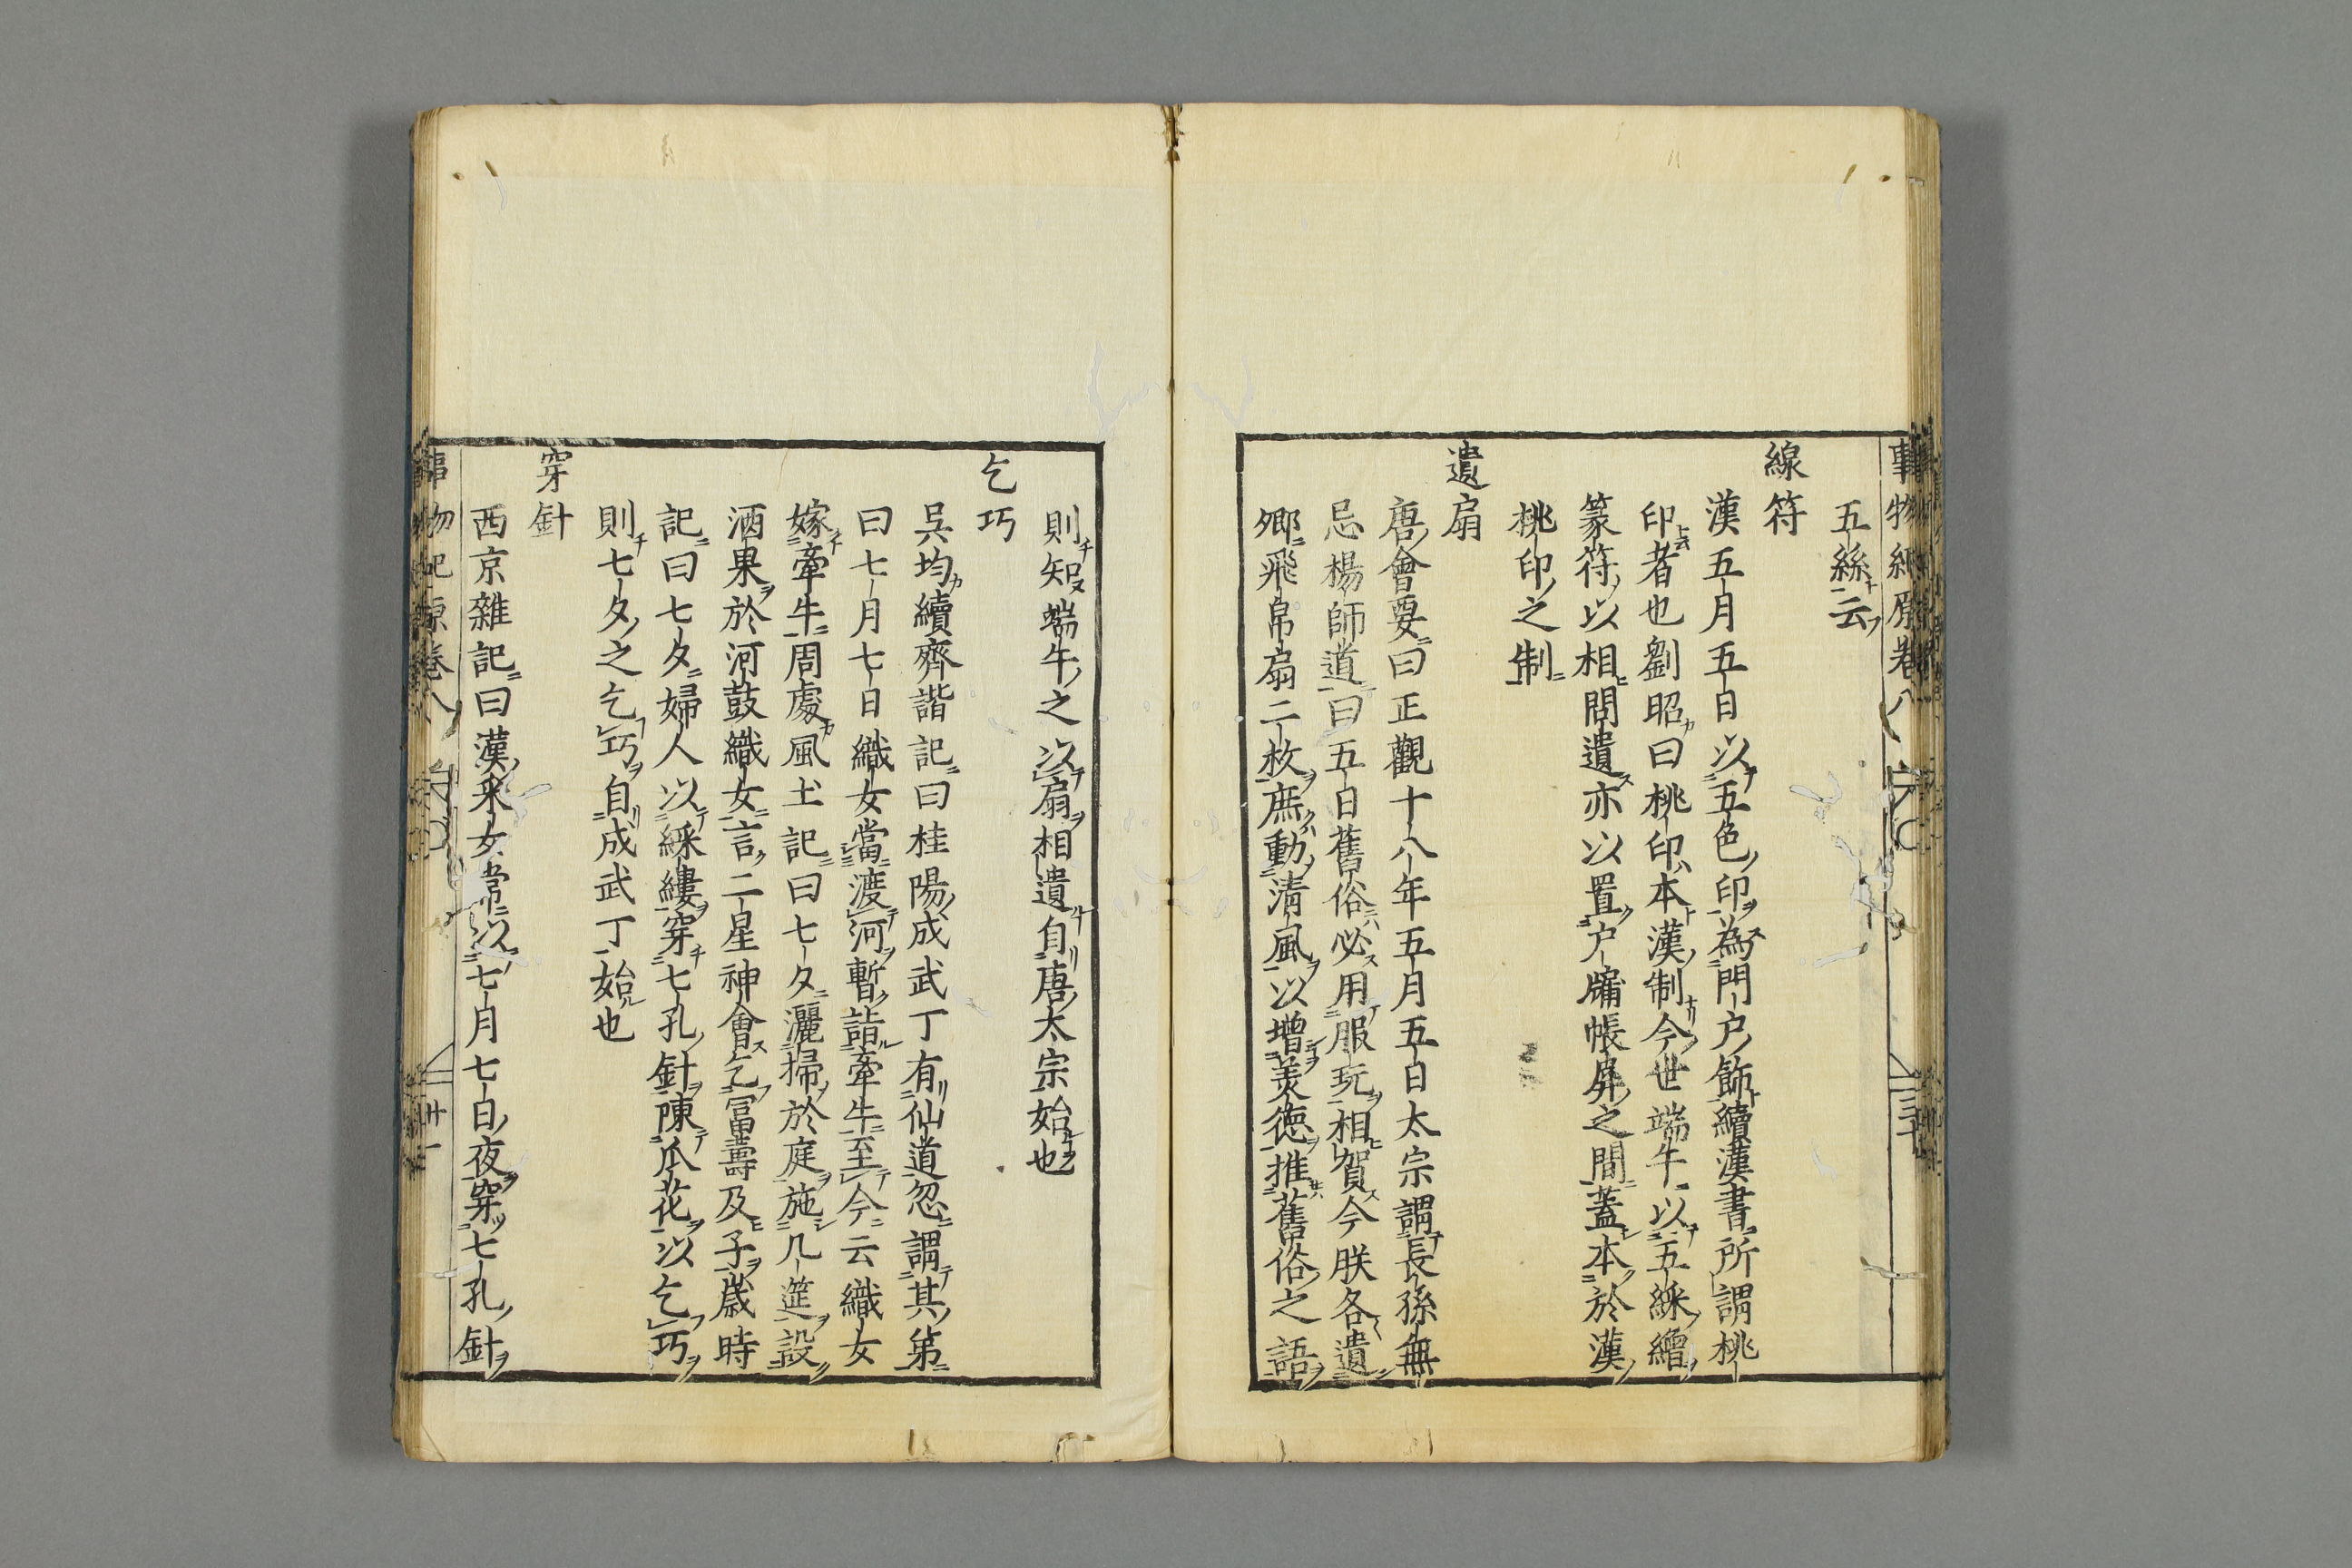 事物紀原卷八
五絲云
線符
漢五月五日以五色印為門戸飾續漢書所謂桃
印者也劉昭曰桃印本漢制今世端午以五綵繒
篆符以相問遺亦以置戸牖帳屏之間蓋本於漢
桃印之制
遺扇
唐會要曰正觀十八年五月五日太宗謂長孫無
忌楊師道曰五日舊俗必用服玩相賀今朕各遺
卿飛帛扇二枚庶動清風以增美德推舊俗之語
則知端午之以扇相遺自唐太宗始也
乞巧
吳均續齊諧記曰桂陽成武丁有仙道忽謂其第
曰七月七日織女當渡河暫詣牽牛至今云織女
嫁牽牛周處風土記曰七夕灑掃於庭施几筵設
酒果於河鼓織女言二星神會乞富壽及子歲時
記曰七夕婦人以綵縷穿七孔針陳瓜花以乞巧
則七夕之乞巧自成武丁始也
穿針
西京雜記曰漢采女常以七月七日夜穿七孔針
事物紀原卷八 廿一